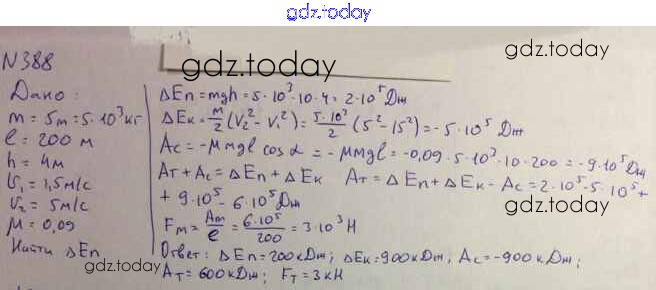 gdz.today
N388
gdz.today
gdz.today
Дано:
m = 5т = 5·10³кг
l = 200 м
h = 4м
υ₁ = 1,5м/с
υ₂ = 5м/с
μ = 0,09
Найти ΔEп
ΔEп = mgh = 5·10³·10·4 = 2·10⁵ Дж
ΔEк = m/2 (V₂² - V₁²) = 5·10³/2 (5² - 15²) = -5·10⁵ Дж
Ac = -μmgl cos α = -μmgl = -0,09·5·10³·10·200 = -9·10⁵ Дж
Aт + Ac = ΔEп + ΔEк Aт = ΔEп + ΔEк - Ac = 2·10⁵ - 5·10⁵ +
+ 9·10⁵ - 6·10⁵ Дж
Fт = Aт/l = 6·10⁵/200 = 3·10³ Н
Ответ: ΔEп = 200кДж; ΔEк = 900кДж; Ac = -900кДж;
Aт = 600кДж; Fт = 3кН
gdz.today
gdz.today
gdz.today